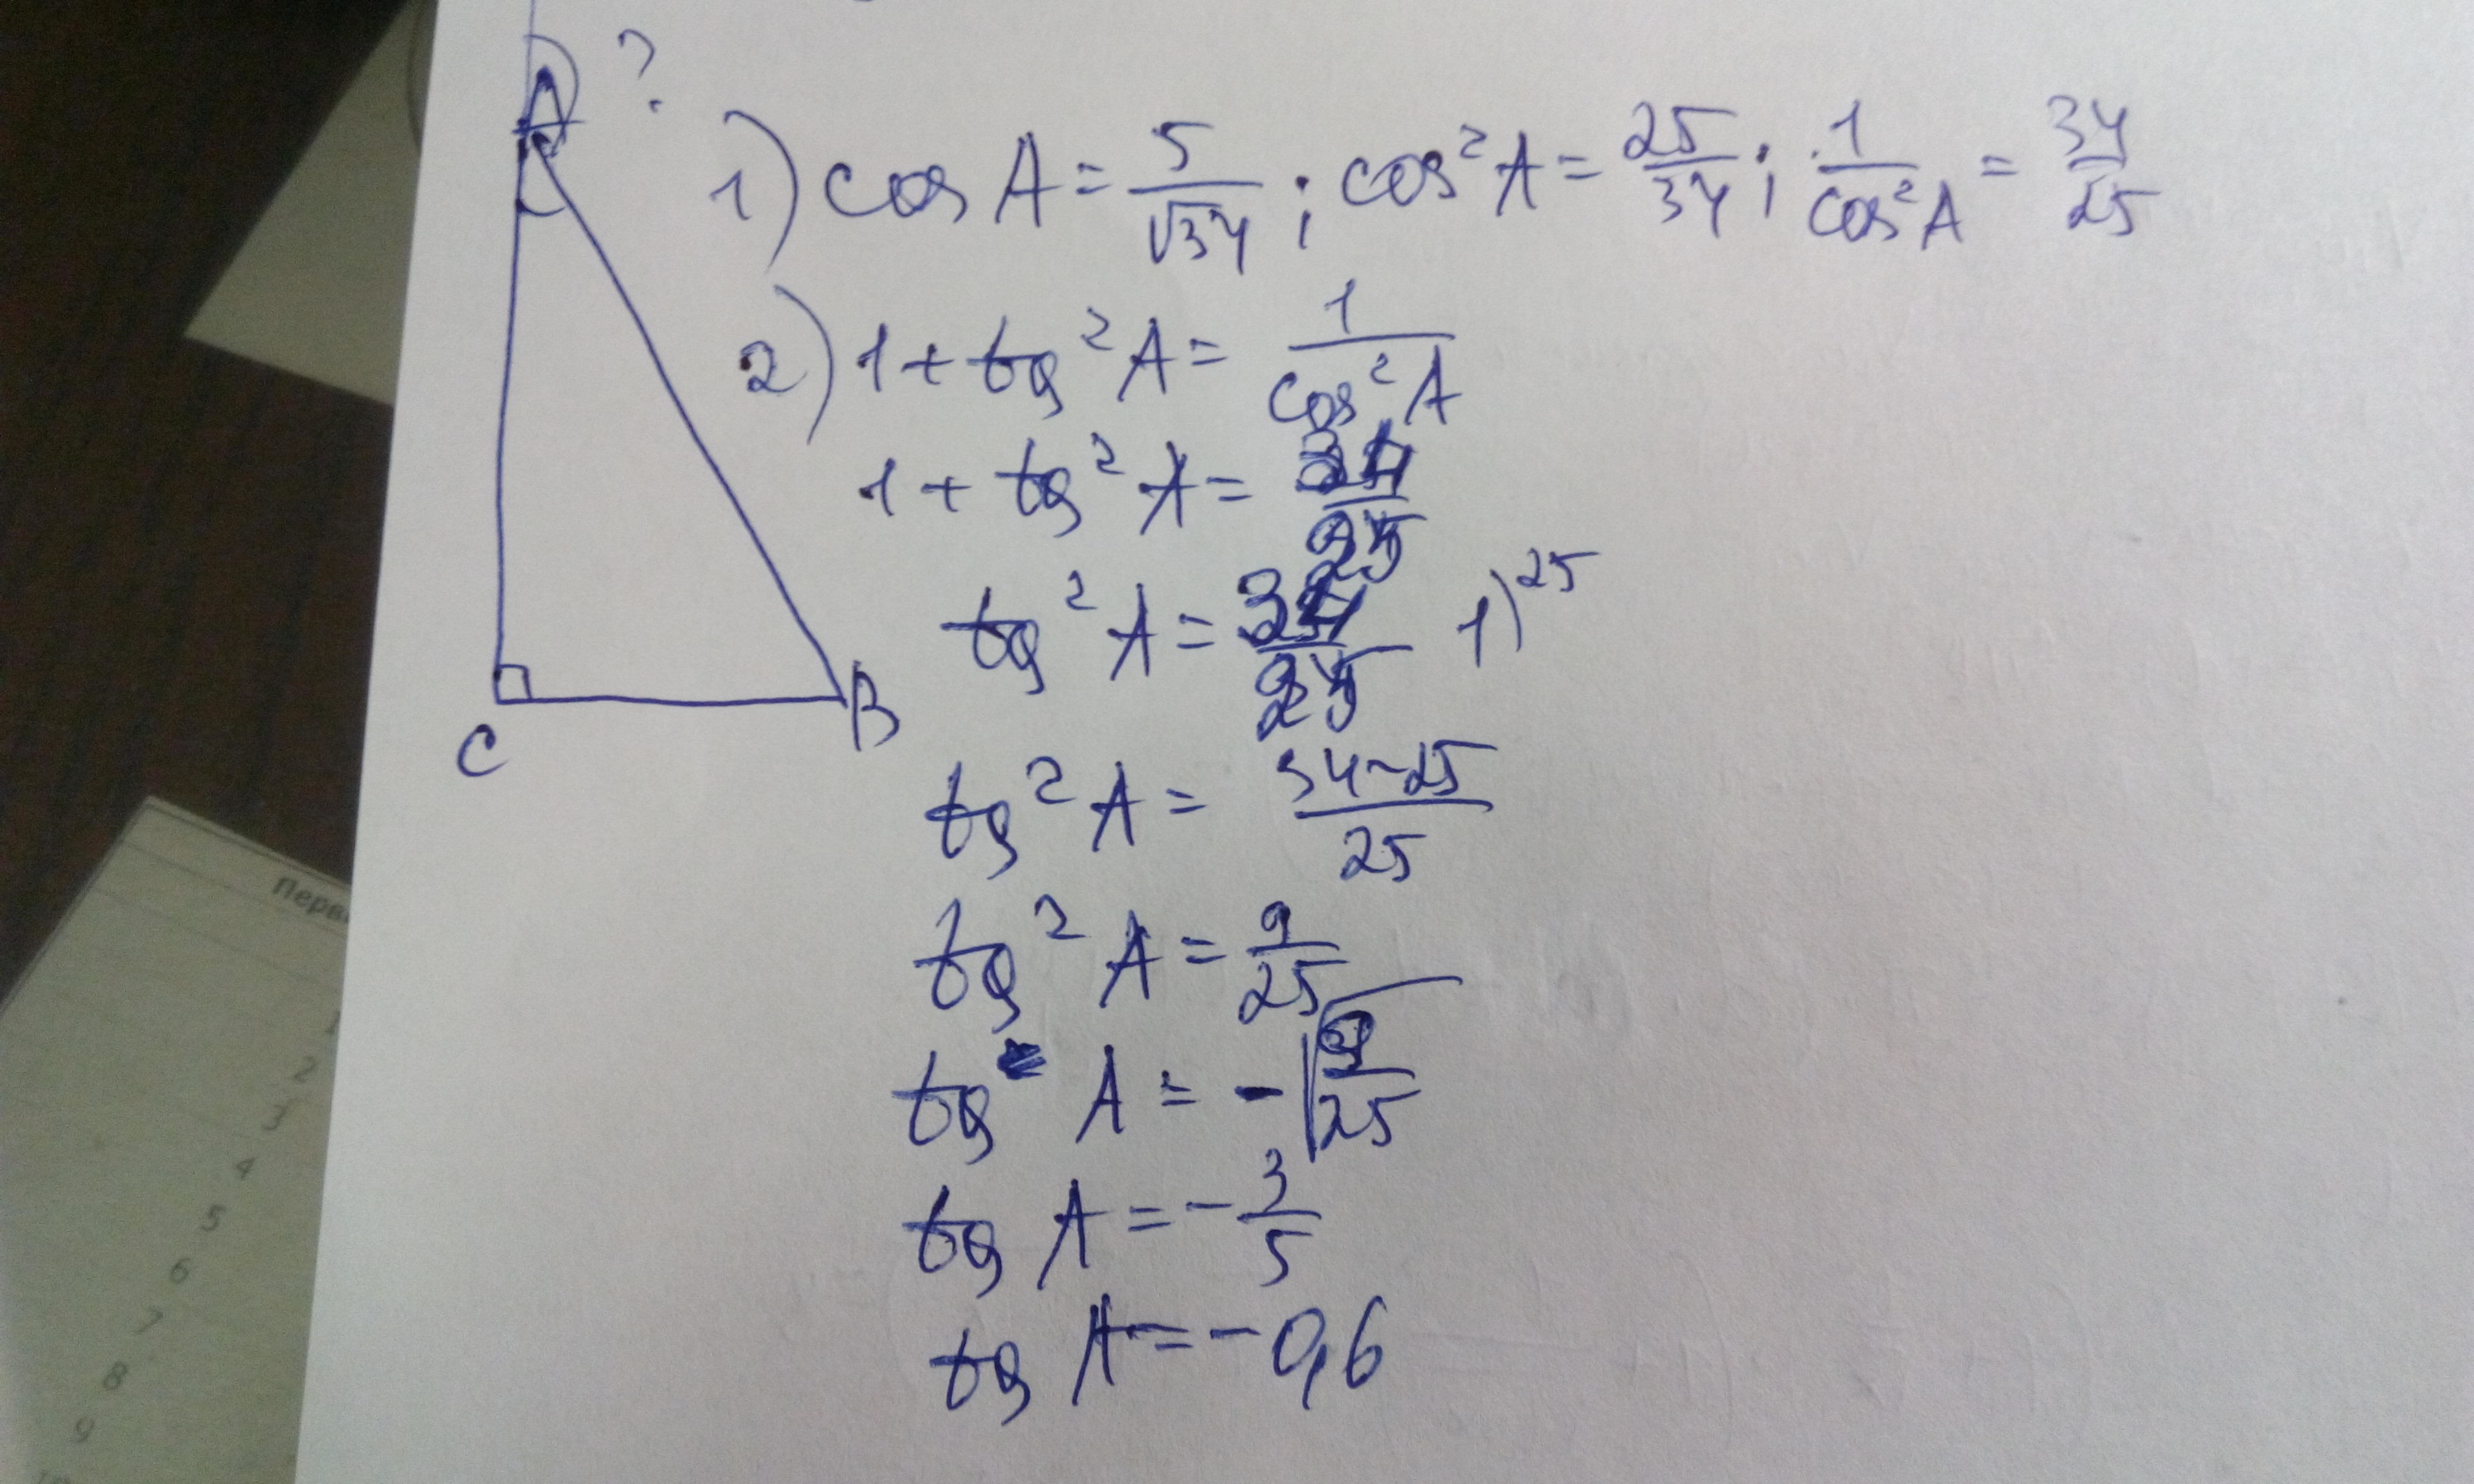 A ?
1) cos A = 5/√34 ; cos²A = 25/34 ; 1/cos²A = 34/25
2) 1 + tg²A = 1/cos²A
1 + tg²A = 34/25
tg²A = 34/25 1)25
C
B
tg²A = 34-25/25
tg²A = 9/25
tg A = -√9/25
tg A = -3/5
tg A = -0,6
Перв
1
2
3
4
5
6
7
8
9